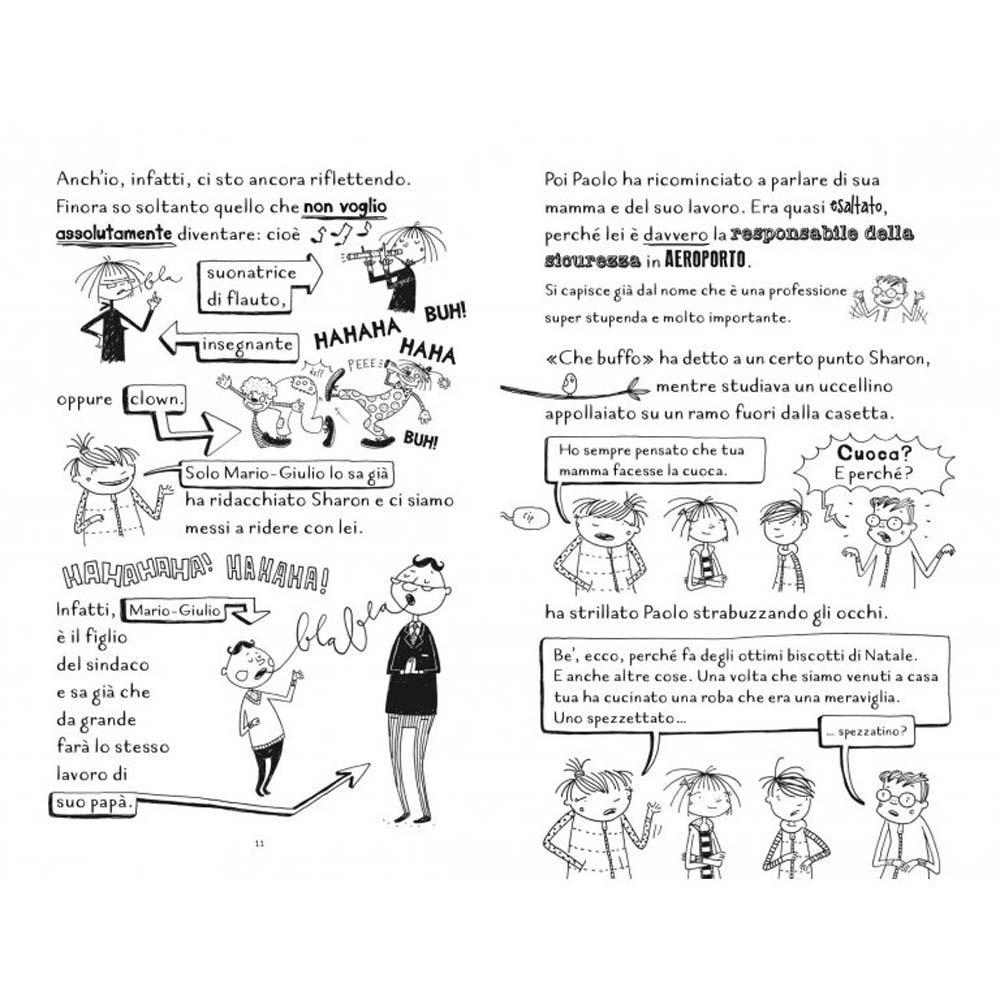 Anch'io, infatti, ci sto ancora riflettendo.
Finora so soltanto quello che non voglio
assolutamente diventare: cioè
bla
suonatrice
di flauto,
BUH!
insegnante
HAHAHA
HAHA
PEEE
oppure clown.
BUH!
Solo Mario-Giulio lo sa già
ha ridacchiato Sharon e ci siamo
messi a ridere con lei.
HAHAHAHA! HAHAHA!
Infatti, Mario-Giulio
blablabla
è il figlio
del sindaco
e sa già che
da grande
farà lo stesso
lavoro di
suo papà.
11
Poi Paolo ha ricominciato a parlare di sua
mamma e del suo lavoro. Era quasi esaltato,
perché lei è davvero la responsabile della
sicurezza in AEROPORTO.
Si capisce già dal nome che è una professione
super stupenda e molto importante.
«Che buffo» ha detto a un certo punto Sharon,
mentre studiava un uccellino
appollaiato su un ramo fuori dalla casetta.
Ho sempre pensato che tua
mamma facesse la cuoca.
Cuoca?
E perché?
cip
ha strillato Paolo strabuzzando gli occhi.
Be', ecco, perché fa degli ottimi biscotti di Natale.
E anche altre cose. Una volta che siamo venuti a casa
tua ha cucinato una roba che era una meraviglia.
Uno spezzettato...
... spezzatino?